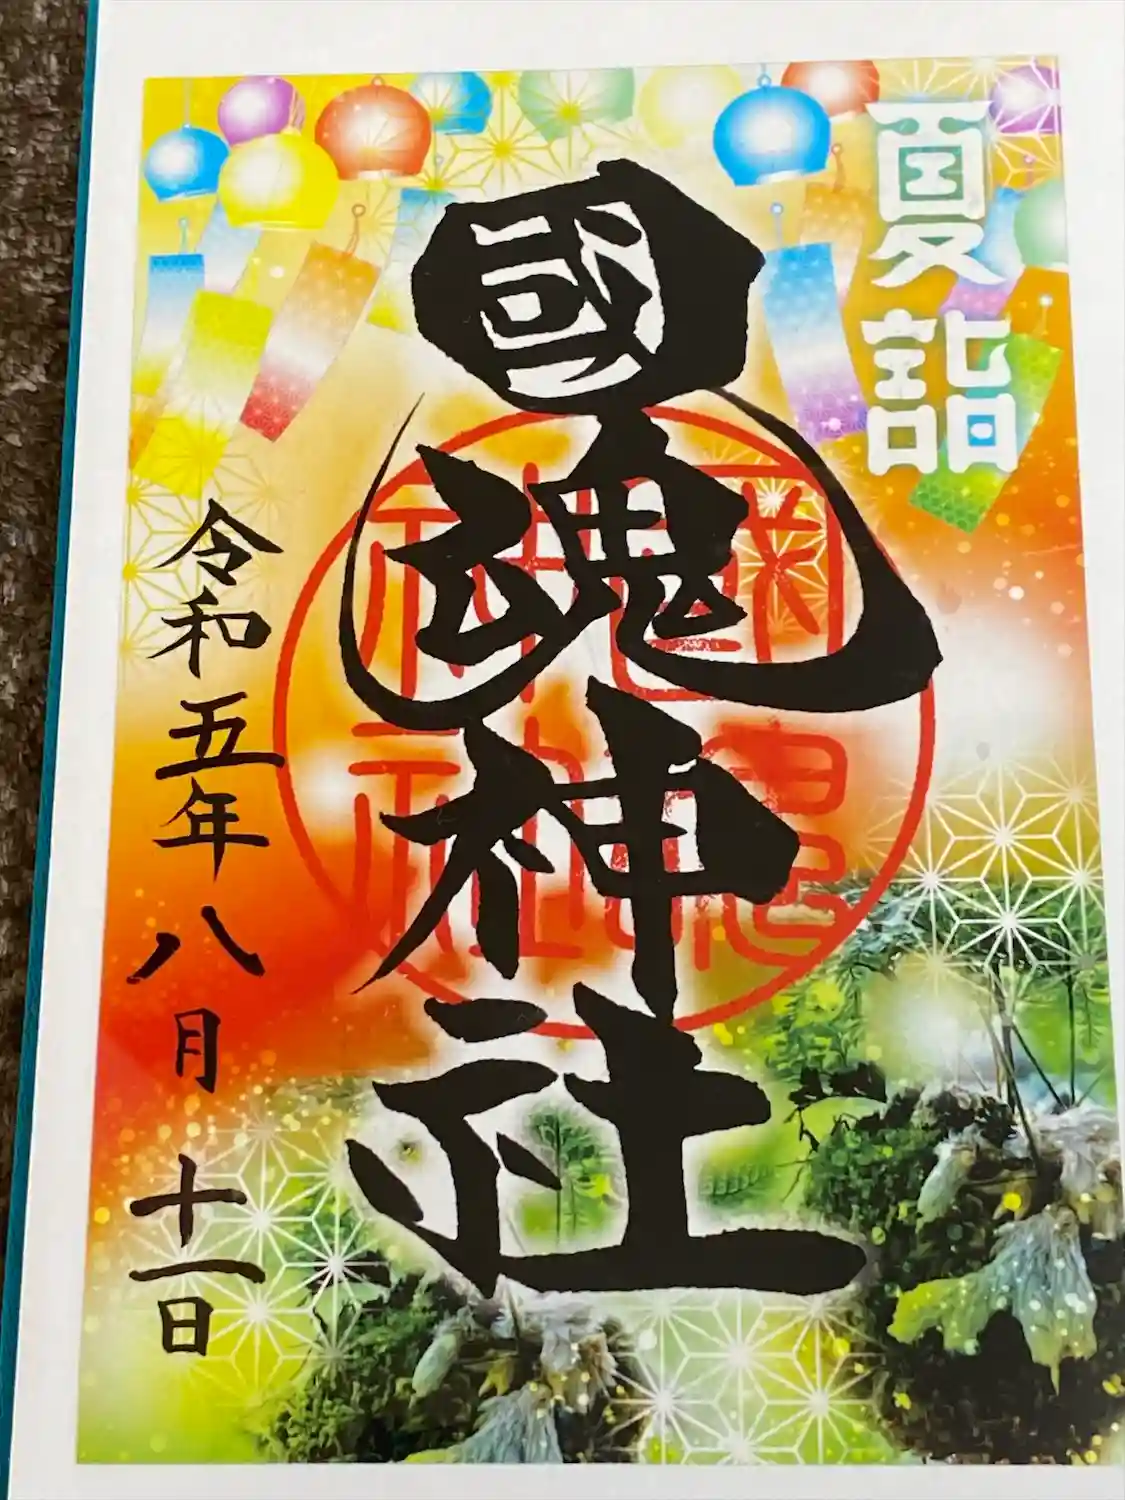 夏詣
國魂神社
令和五年八月十一日